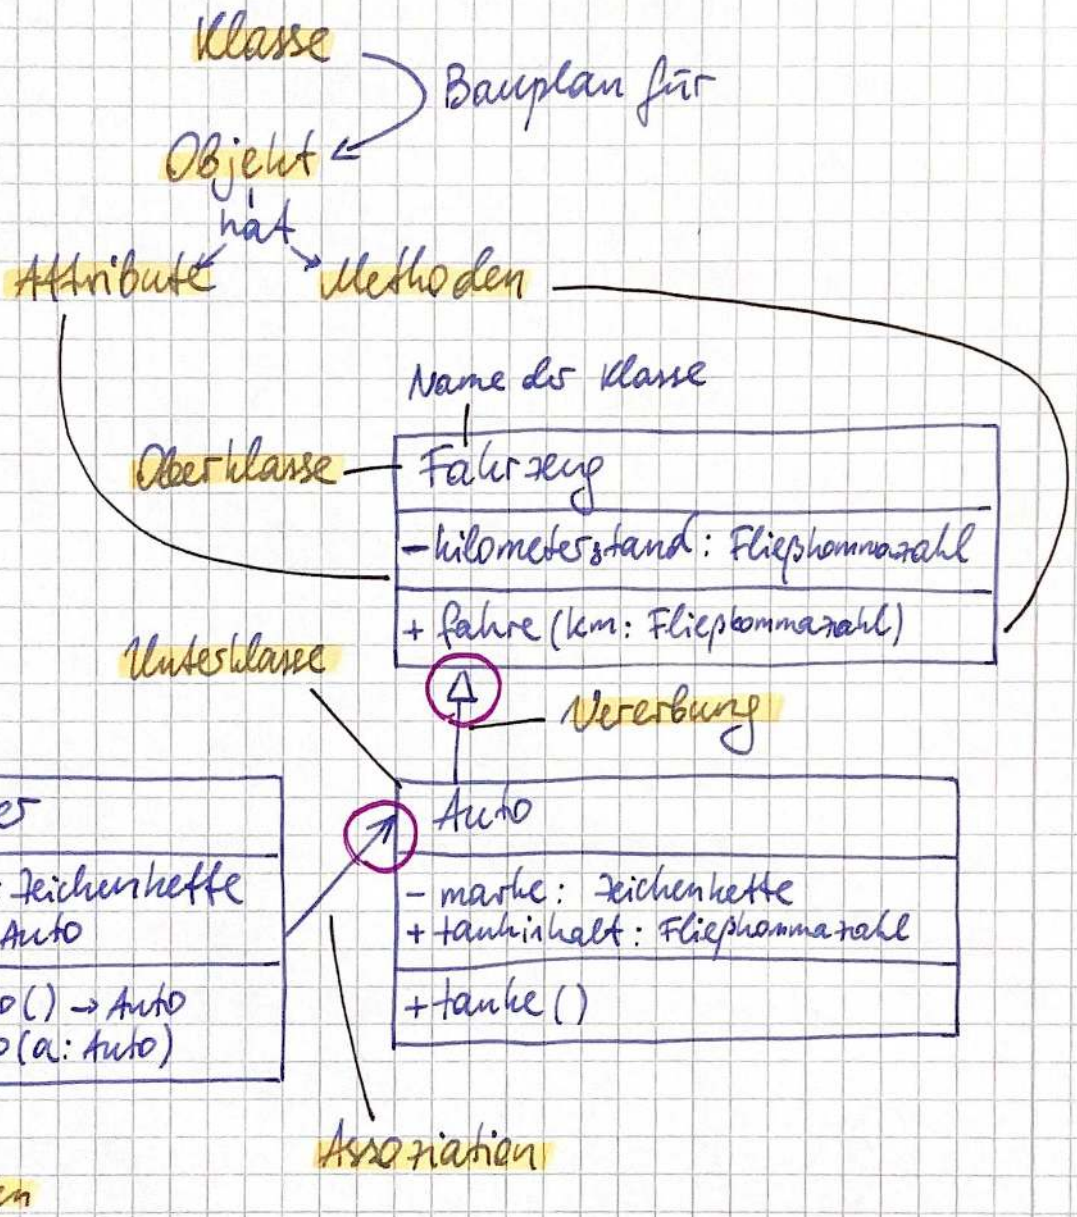 Klasse
Bauplan für
Objekt
hat
Attribute
Methoden
Name der Klasse
Oberklasse
Fahrzeug
- kilometerstand: Fließkommazahl
+ fahre (km: Fließkommazahl)
Unterklasse
Vererbung
er
Auto
: Zeichenkette
Auto
- marke: Zeichenkette
+ tankinhalt: Fließkommazahl
o() → Auto
o(a: Auto)
+ tanke ()
Assoziation
en